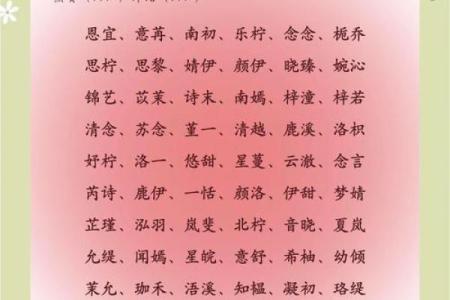 恩宜、意苒、南初、乐柠、念念、栀乔
思柠、思黎、婧伊、颜伊、晓臻、婉沁
锦艺、苡茉、诗末、南嫣、梓潼、梓若
清念、苏念、堇一、清越、鹿溪、洛枳
妤柠、洛一、悠甜、星蔓、云澈、念言
芮诗、鹿伊、一恬、颜洛、伊甜、梦婧
芷瑾、泓羽、岚斐、北柠、音晓、夏岚
允缇、闻嫣、星皖、意舒、希柚、幼倾
茉允、珈禾、浯溪、知楹、凝初、珞缇